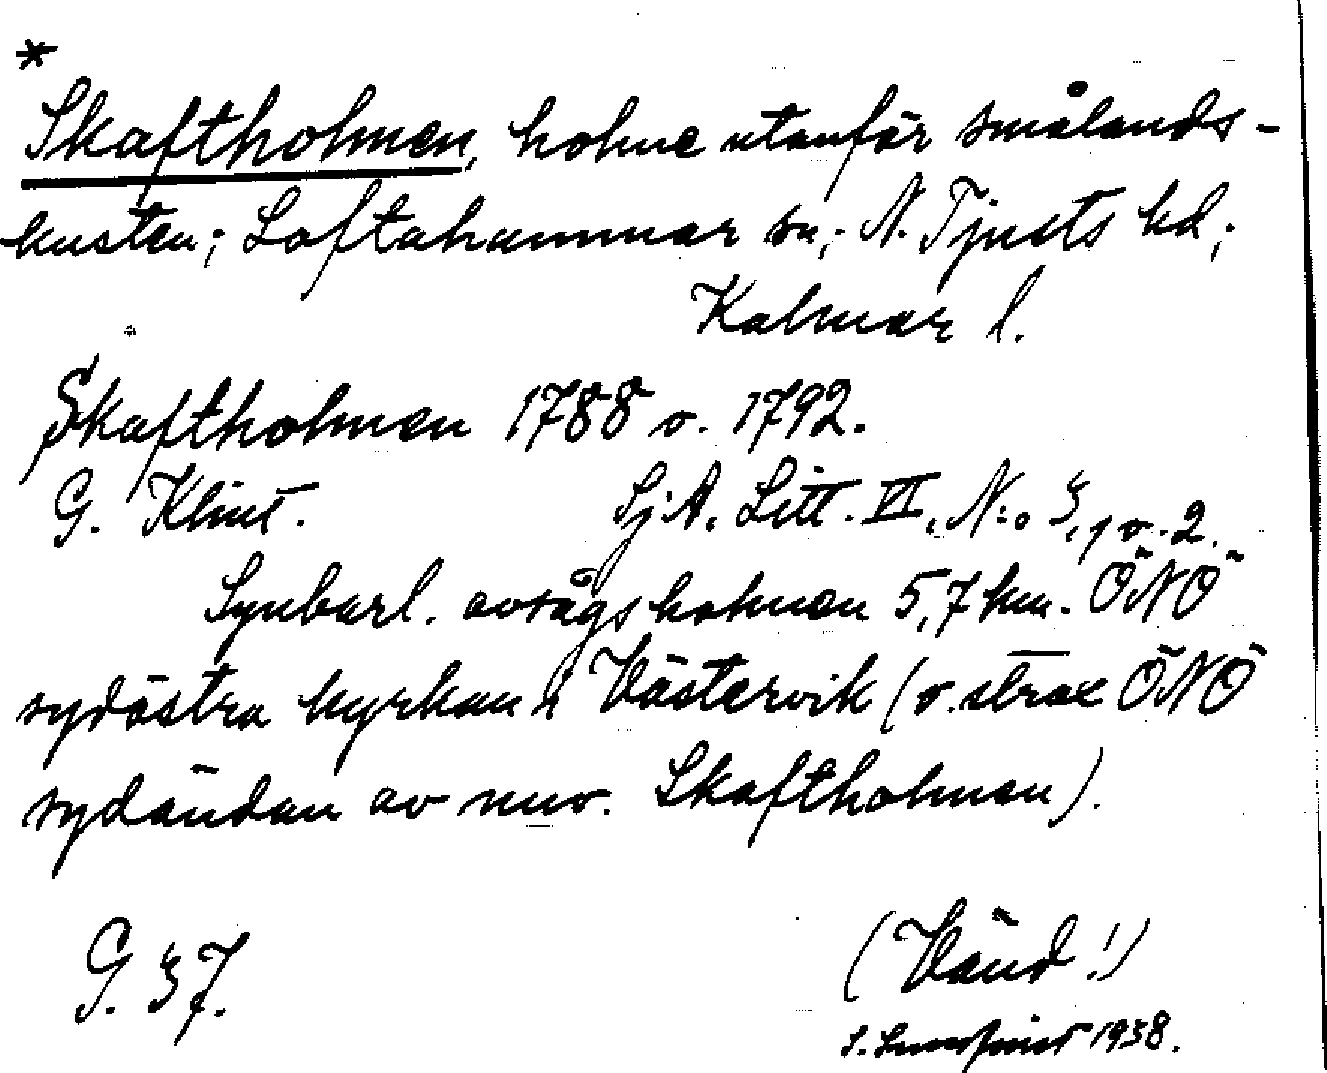 *
Skaftholmen, holme utanför smålands-
kusten; Loftahammar sn; N. Tjusts hd;
Kalmar l.
Skaftholmen 1788 o. 1792.
G. Klint. SjA. Litt. VI, N:o 3, 1 o. 2.
Synbarl. avsågs holmen 5,7 km. ÖNÖ
sydöstra kyrkan i Västervik (o. strax ÖNÖ
sydändan av nuv. Skaftholmen).
G. 37. (Vänd!)
S. 1938.